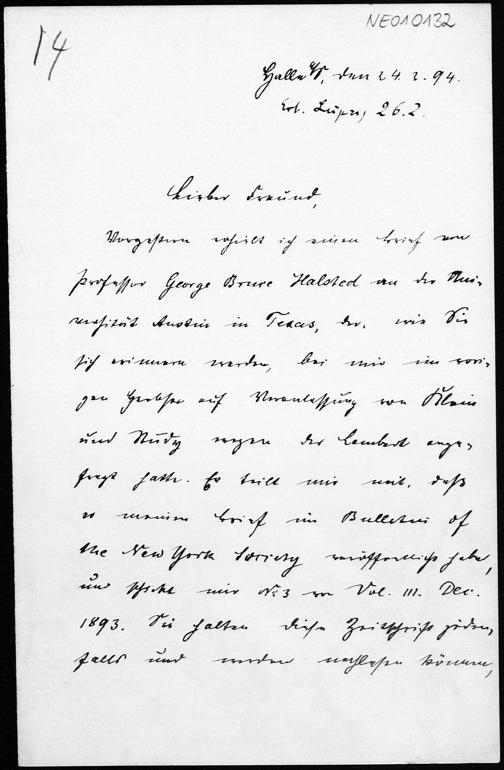 NE010132
14
Halle a/S, den 24. 2. 94.
Erh. Leipz., 26.2.
Lieber Freund,
Vorgestern erhielt ich einen Brief von
Professor George Bruce Halsted an der Uni-
versität Austin in Texas, der, wie Sie
sich erinnern werden, bei mir im vori-
gen Herbste auf Veranlassung von Klein
und Study wegen des Lambert ange-
fragt hatte. Er teilt mir mit, daß
er meinen Brief im Bulletin of
the New York Society veröffentlicht habe,
und schickt mir No. 3 von Vol. III. Dec.
1893. Sie halten diese Zeitschrift jeden-
falls und werden nachlesen können,